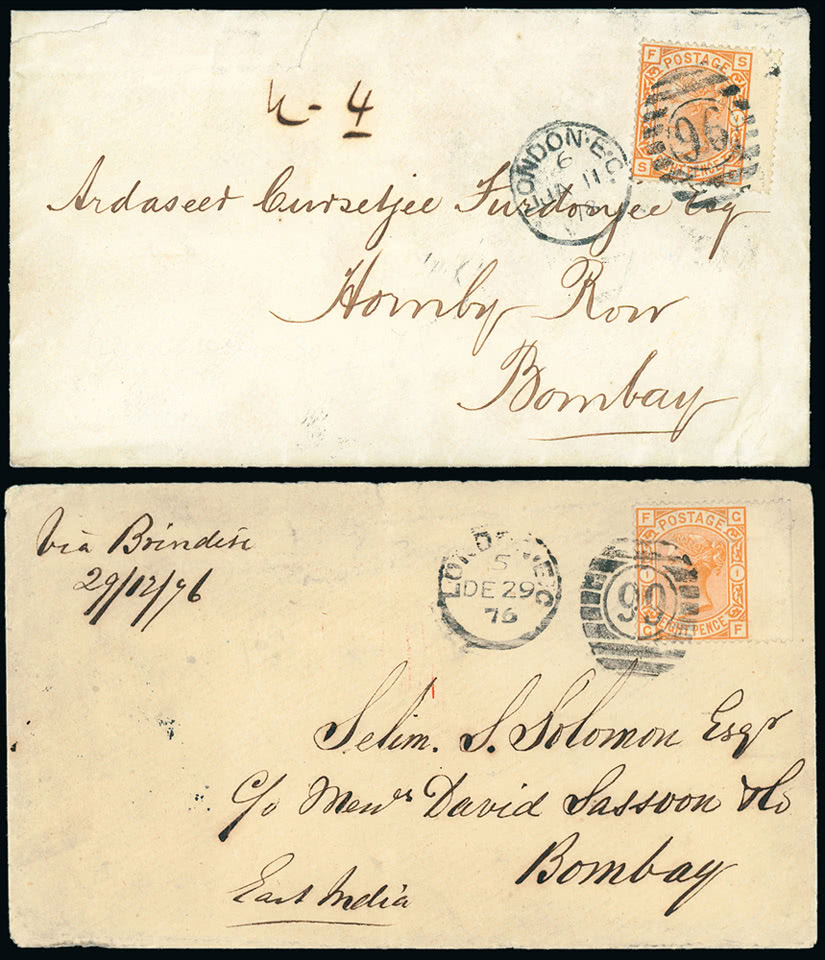 F POSTAGE S
S PENCE
96
LONDON·E·C
6
JA 11
78
4
Ardaseer Cursetjee Furdonjee Esq
Hornby Row
Bombay
Via Brindisi
29/12/76
LONDON E·C
5
DE 29
76
99
F POSTAGE G
1 1
G EIGHT PENCE F
Selim. S. Solomon Esqr
c/o Messrs David Sassoon & Co
Bombay
East India